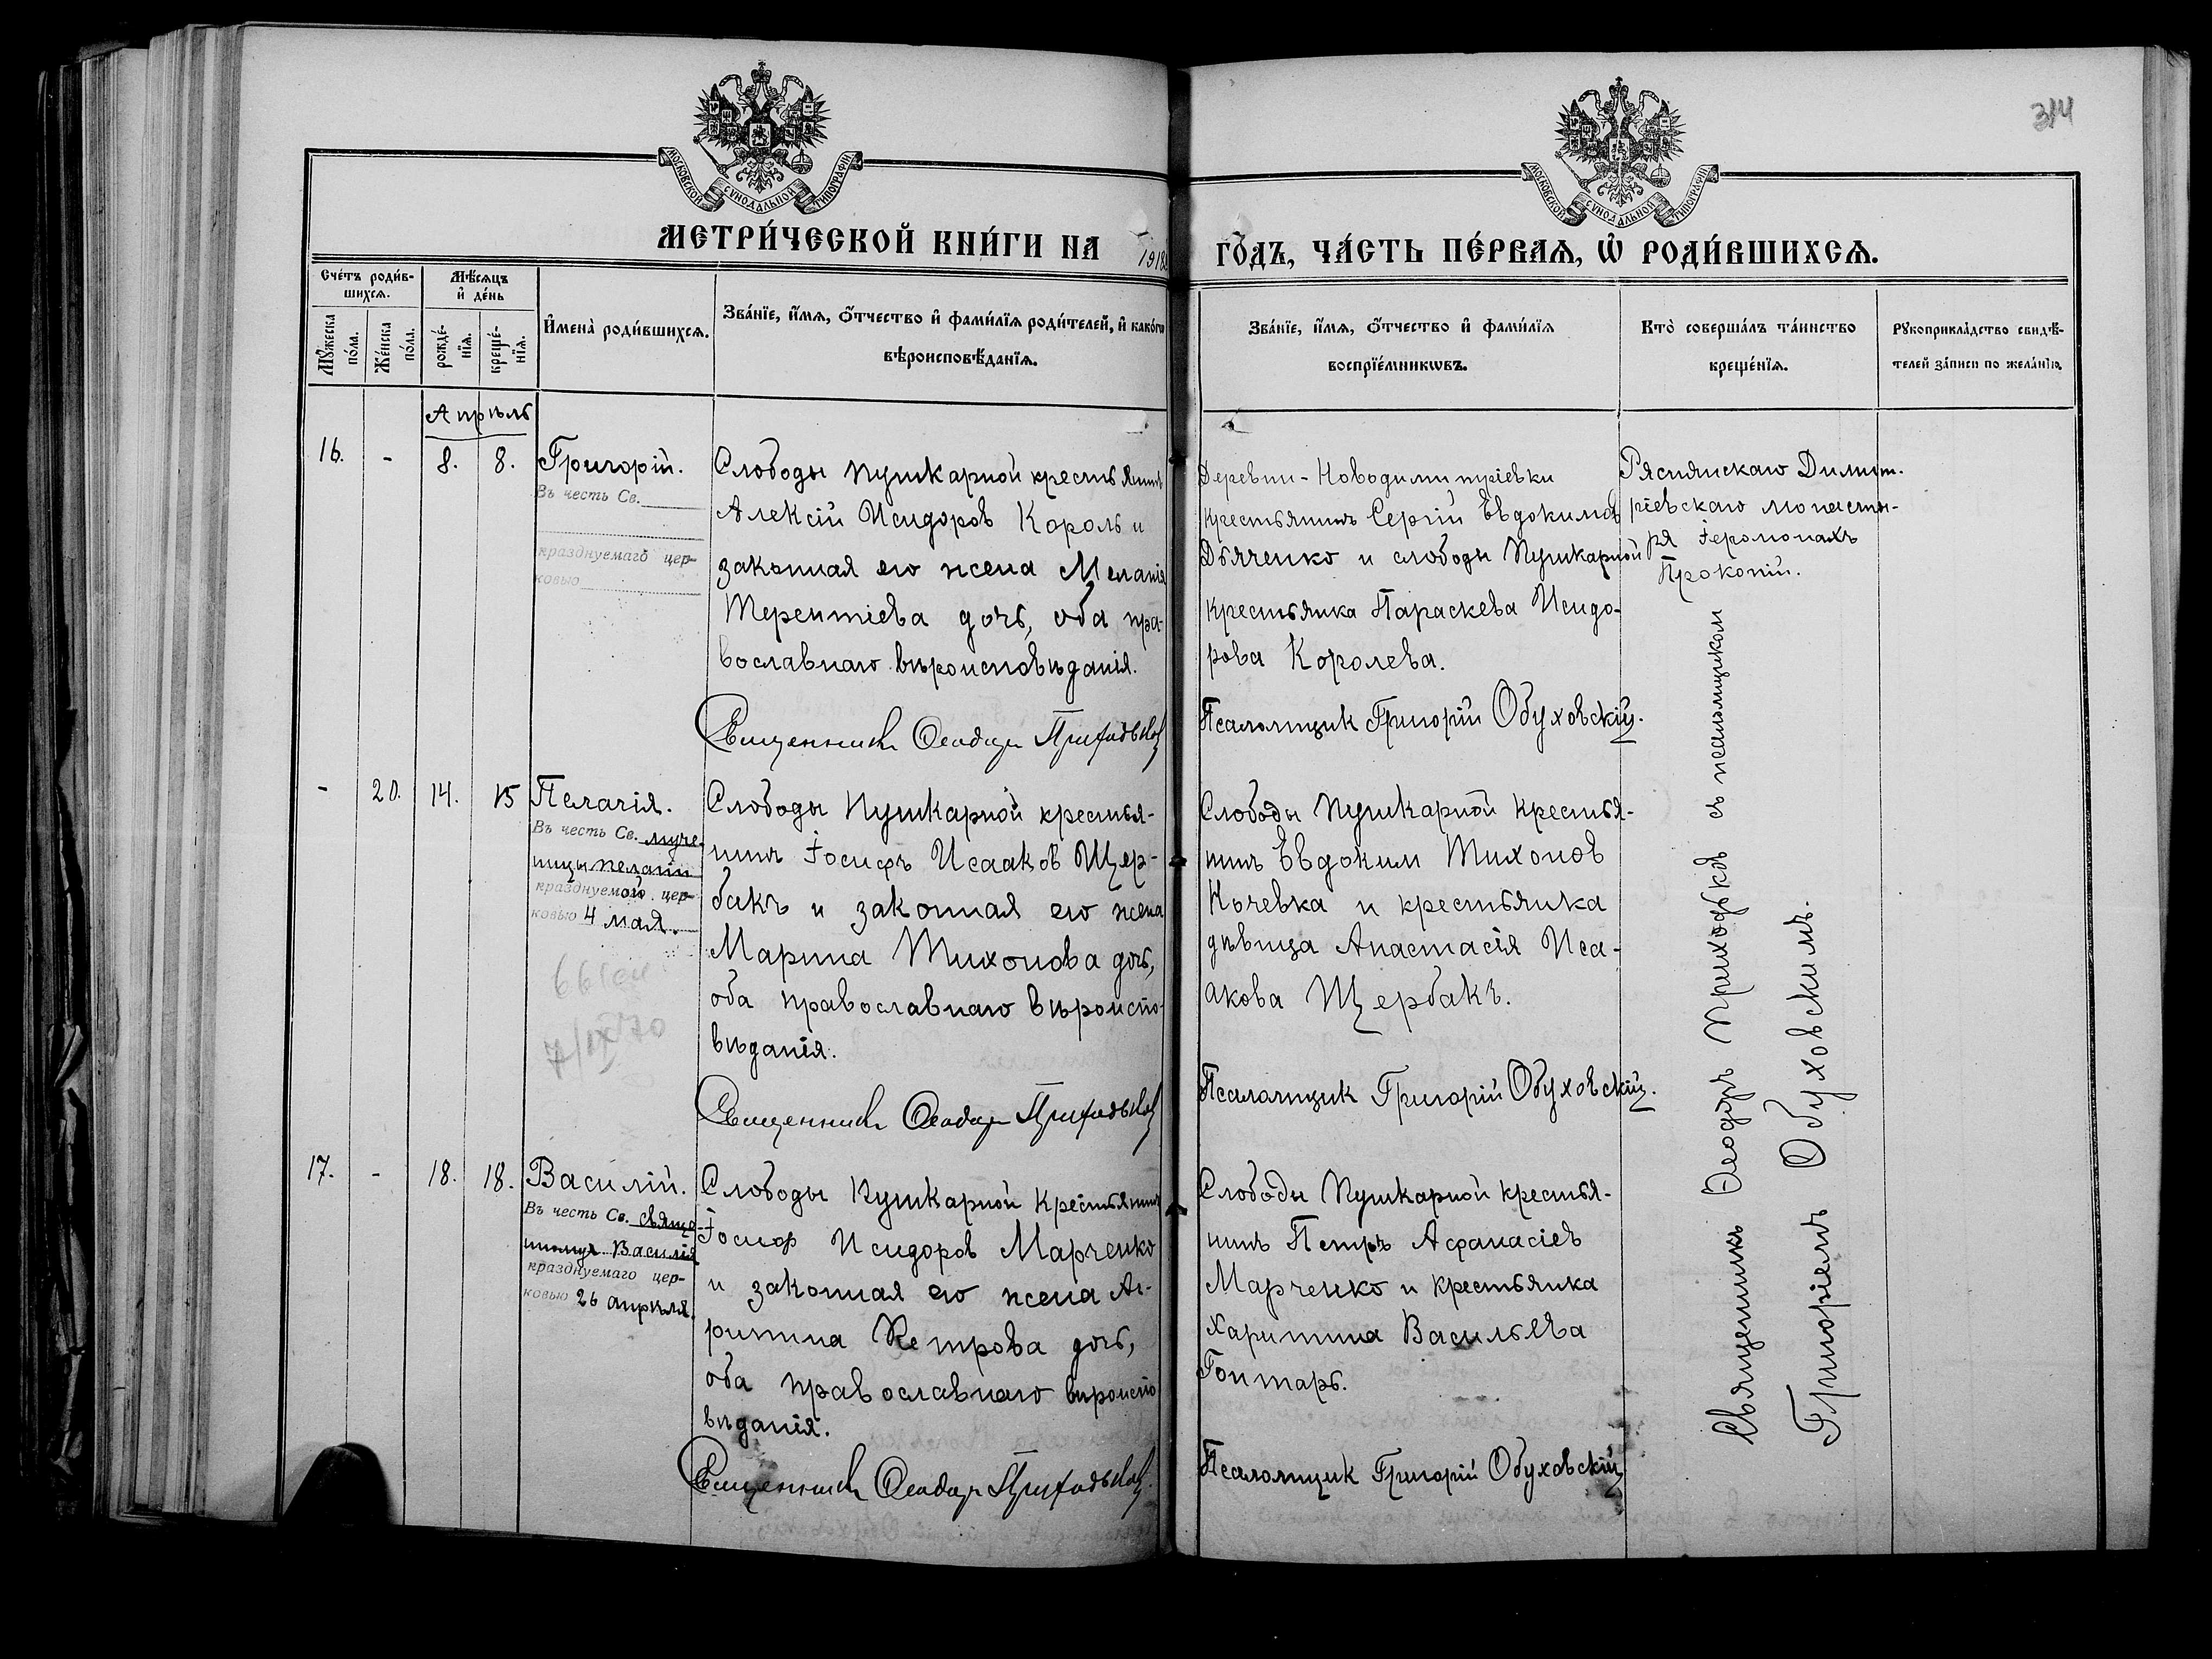 314
МОСКОВСКОЙ СѴНОДАЛЬНОЙ ТИПОГРАФІИ
МОСКОВСКОЙ СѴНОДАЛЬНОЙ ТИПОГРАФІИ
МЕТРИ́ЧЕСКОЙ КНИ́ГИ НА 191 ГО́ДЪ, ЧА́СТЬ ПЕ́РВАѦ, Ѡ҆ РОДИ́ВШИХСѦ.
Сче́тъ роди́в-
шихсѧ.
Мꙋ́жеска
по́ла.
Же́нска
по́ла.
Мѣ́сѧцъ
и҆ де́нь
рожде́-
нїѧ.
креще́-
нїѧ.
И҆мена̀ роди́вшихсѧ.
Зва́нїе, и҆́мѧ, ѻ҆́тчество и҆ фами́лїѧ роди́телей, и҆ како́гѡ
вѣроисповѣ́данїѧ.
Зва́нїе, и҆́мѧ, ѻ҆́тчество и҆ фами́лїѧ
воспрїе́мникѡвъ.
Кто̀ соверша́лъ та́инство
креще́нїѧ.
Рꙋкоприкла́дство свидѣ́-
телей за́писи по жела́нїю.
Апрѣль
16. - 8. 8.
Григорій.
Въ честь Св.
празднуемаго цер-
ковью
Слободы Пушкарной крестьянинъ
Алексій Исидоров Король и
законная его жена Меланія
Терентіева дочь, оба пра-
вославнаго вѣроисповѣданія.
Священникъ Ѳеодоръ Приходько
Деревни - Новодимитріевки
крестьянинъ Сергій Евдокимов
Дьяченко и слободы Пушкарной
крестьянка Параскева Исидо-
рова Королева.
Псаломщик Григорій Обуховскій.
Ряснянскаго Димит-
ріевскаго монасты-
ря Іеромонахъ
Прокопій.
- 20. 14. 15
Пелагія.
Въ честь Св. муче-
ницы Пелагіи
празднуемой цер-
ковью 4 мая.
7/IX 70
Слободы Пушкарной крестья-
нинъ Іосифъ Исааков Щер-
бакъ и законная его жена
Марина Тихонова дочь,
оба православнаго вѣроиспо-
вѣданія.
Священникъ Ѳеодоръ Приходько
Слободы Пушкарной крестья-
нинъ Евдоким Тихонов
Кочевка и крестьянка
дѣвица Анастасія Иса-
акова Щербакъ.
Псаломщик Григорій Обуховскій.
17. - 18. 18.
Василій.
Въ честь Св. свящо-
нномуч. Василія
празднуемаго цер-
ковью 26 апрѣля.
Слободы Пушкарной крестьянинъ
Іосиф Исидоров Марченко
и законная его жена Ag-
рипина Петрова дочь,
оба православнаго вѣроиспо-
вѣданія.
Священникъ Ѳеодоръ Приходько
Слободы Пушкарной крестья-
нинъ Петръ Афанасіев
Марченко и крестьянка
Харитина Васильева
Гонтарь.
Псаломщик Григорій Обуховскій
Священникъ Ѳеодоръ Приходькѡ съ псаломщиком
Григоріемъ Обуховскимъ.